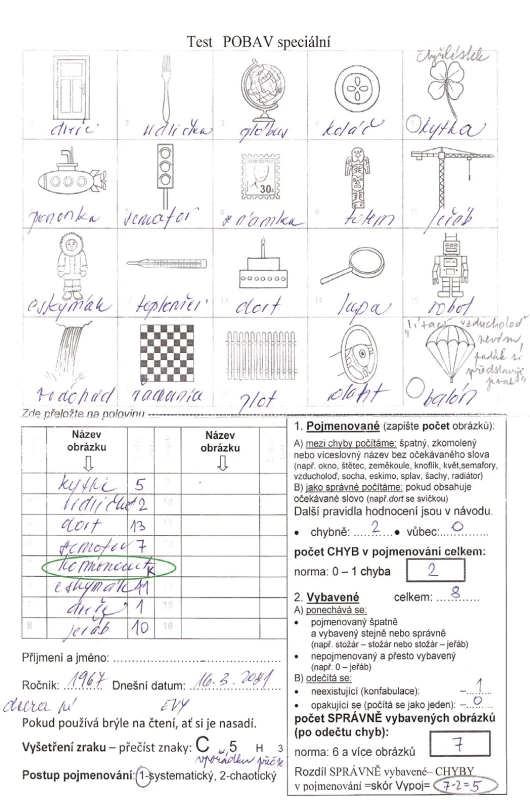 Test POBAV speciální
čtyřlístek
dveře vidlička globus koláč kytka
ponorka semafor známka totem jeřáb
eskymák teploměr dort lupa robot
"lítací vzducholoď neví
padák si
představuje
vodopád šachovnice plot volant balón
Zde přeložte na polovinu
Název obrázku Název obrázku
kytka 5
vidlička 2
dort 13
semafor 7
eskymák 11
dveře 1
jeřáb 10
Příjmení a jméno:
Ročník: 1967 Dnešní datum: 16.3.2021
dcera pí EVY
Pokud používá brýle na čtení, ať si je nasadí.
Vyšetření zraku – přečíst znaky: C 5 H 3
vpořádku
Postup pojmenování: 1-systematický, 2-chaotický
1. Pojmenované (zapište počet obrázků):
A) mezi chyby počítáme: špatný, zkomolený
nebo víceslovný název bez očekávaného slova
(např. okno, štětec, zeměkoule, knoflík, květ,semafory,
vzducholoď, socha, eskimo, splav, šachy, radiátor)
B) jako správné počítáme: pokud obsahuje
očekávané slovo (např.dort se svíčkou)
Další pravidla hodnocení jsou v návodu.
• chybně: 2 • vůbec: 0
počet CHYB v pojmenování celkem:
norma: 0 – 1 chyba 2
2. Vybavené celkem: 8
A) ponechává se:
• pojmenovaný špatně
a vybavený stejně nebo správně
(např. stožár – stožár nebo stožár – jeřáb)
• nepojmenovaný a přesto vybavený
(např. 0 – jeřáb)
B) odečítá se:
• neexistující (konfabulace): –1
• opakující se (počítá se jako jeden): –0
počet SPRÁVNĚ vybavených obrázků
(po odečtu chyb):
norma: 6 a více obrázků 7
Rozdíl SPRÁVNĚ vybavené– CHYBY
v pojmenování =skór Vypoj= 7-2=5